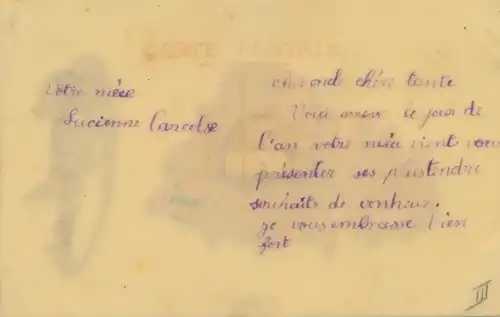 Votre nièce
Lucienne
chère tante
Voici assez le jour de
l'an votre nièce vient vous
présenter ses plus tendre
souhaits de bonheur.
je vous embrasse bien
fort
III